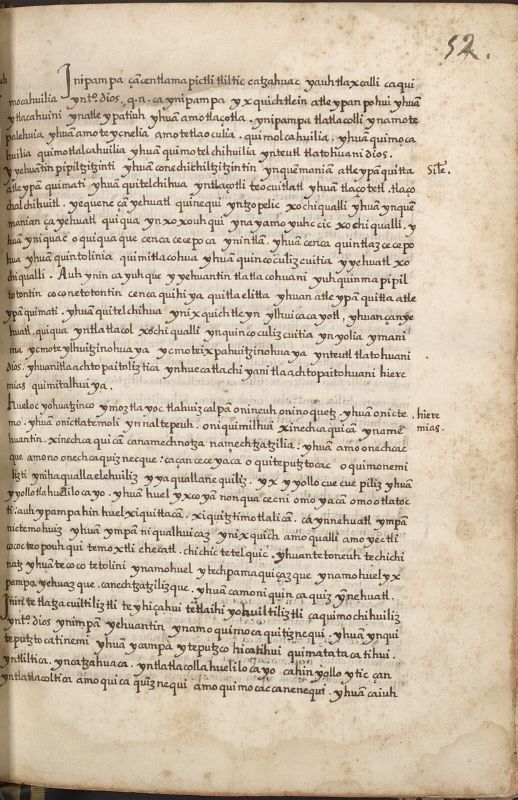 52.
Jnipampa çā centlamapictli tliltic catzahuac yauhtlaxcalli ca qui
mocahuilia ynto dios, q.n. ca ynipampa yxquich tlein atle ypan pohui yhuā
ytlacahuini ynatle ypatiuh yhuā amo tlaçotla. ynipampa tlatlacolli ynamo te
palehuia yhuā amo teycnelia amo tetlaoculia. quimolcahuilia. yhuā quimoca
huilia quimotlalcahuilia yhuā quimotelchihuilia ynteutl tlatohuani dios.
yyehuantin pipiltzitzinti yhuā conechichiltzitzintin ynquēmaniā atle ypā quitta
atle ypā quimati yhuā quitelchihua yntlaçotli teocuitlatl yhuā tlaçotetl. tlaço
chalchihuitl. yequene ça yehuatl quinequi yntzopelic xochiqualli yhuā ynquē
manian ça yehuatl quiqua ynxoxouhqui ynayamo yuhcic xochiqualli. y
huā yniquac oquiqua que cenca cecepoca ynintlā. yhuā cenca quintlazcecepo
hua yhuā quintolinia quimitlacohua yhuā quincocolizcuitia yyehuatl xo
chiqualli. Auh ynin ca yuhque yyehuantin tlatlacohuani yuhquinma pipil
totontin coconetotontin cenca quihiya quitlaelitta yhuan atle ypā quitta atle
ypā quimati. yhuā quitelchihua ynixquich tleyn ylhuicacayotl, yhuan çan ye
huatl, quiqua yntlatlacol xochiqualli ynquincocolizcuitia ynyolia ymani
ma ycmoteylhuitzinohua ya ycmoteixpahuitzinohua ya ynteutl tlatohuani
dios. yhuan itlaachtopaitoliztica ynhuecatlachiyani tlaachtopaitohuani hiere
mias quimitalhui ya.
Hueloc yohuatzinco ymoztla yoc tlahuizcalpā onineuh oninoquetz. yhuā onicte
mo. yhuā onictlatemoli ynnaltepeuh. oniquimilhui xinechcaquicā yname
huantin. xinechcaquicā canamechnotza namechtzatzilia: yhuā amo onechcac
que amo no onechcaquiznecque: ca çan cece yaca oquiteputztocac oquimonemi
lizti ynihaqualla elehuiliz yyaqualla nequiliz. yx yyollo cuecuepiliz yhuā
yyollotlahuelilocayo. yhuā huel yxcoyā nonqua cecni omoyacā omootlatoc
ti. auh ypampa hin huel xiquittacā. xiquiztimotlalicā. cā ynnehuatl ympā
nictemohuiz yhuā ympā niqualhuicaz ynixquich amo qualli amo yectli
cococ teopouhqui temoxtli ehecatl. chichic tetelquic. yhuan tetoneuh techichi
natz yhuā tecocotetolini ynamo huel ytechpa maquiçazque ynamo huel yx
pampa yehuazque. canechtzatzilizque. yhuā camo niquincaquiz ynehuatl.
Jnin tetlatzacuiltiliztli teyhiçahui tetlaihiyohuiltiliztli ca quimochihuiliz
ynto dios ynimpā yehuantin ynamo quimocaquitiznequi. yhuā ynqui
teputztocatinemi yhuā ycampa yteputzco hicatihui quimatatacatihui.
yntliltica. yncatzahuaca. yntlatlacolla huelilocayo cahin yollo ytic çan
yntlatlacoltica amo quicaquiznequi amo quimocaccanenequi. yhuā caiuh
Site.
hiere
mias.